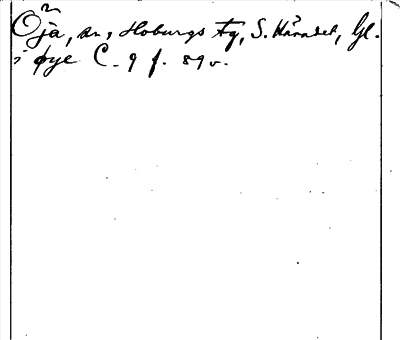 Öja, sn, Hoburgs tg, S. Häradet, Gl.
i øye C. 9 f. 89 v.